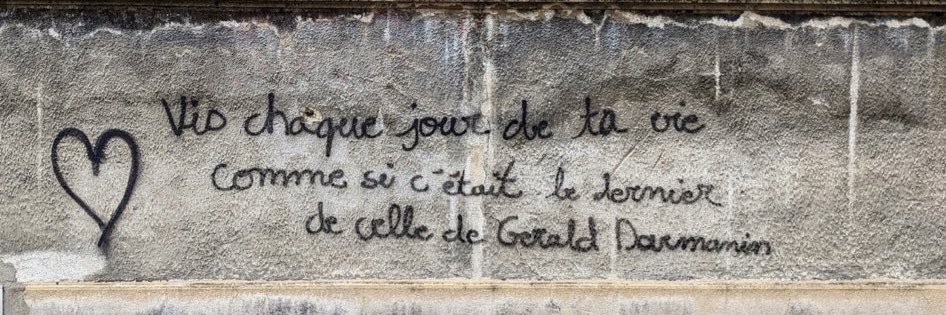 Vis chaque jour de ta vie
comme si c'était le dernier
de celle de Gerald Darmanin